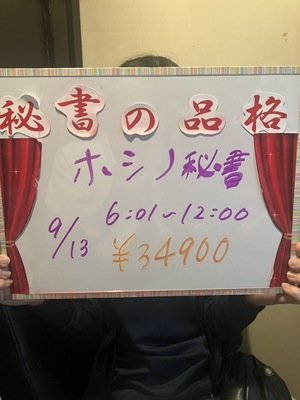 秘書の品格
ホシノ秘書
6:01~12:00
9/13
¥34900